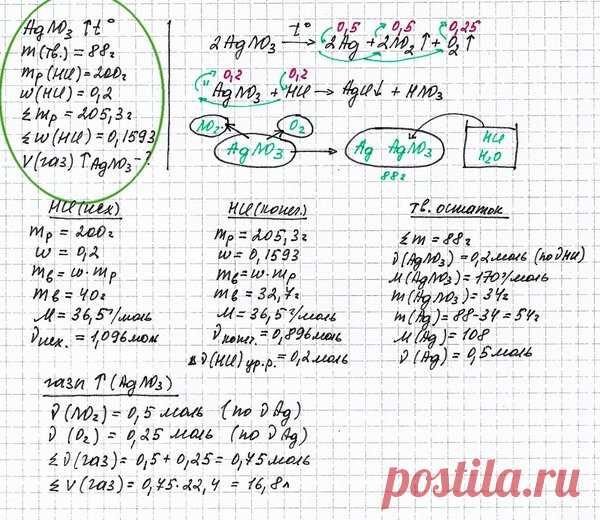 AgNO₃ ↑t°
m(тв.) = 88г
mр(HCl) = 200г
w(HCl) = 0,2
Σmр = 205,3г
Σw(HCl) = 0,1593
V(газ)↑AgNO₃ - ?
0,5 0,5 0,25
2AgNO₃ →t° 2Ag + 2NO₂↑ + O₂↑
0,2 0,2
AgNO₃ + HCl → AgCl↓ + HNO₃
NO₂ O₂
AgNO₃ Ag AgNO₃ HCl
H₂O
88г
HCl(исх)
mр = 200г
w = 0,2
mв = w·mр
mв = 40г
M = 36,5г/моль
νисх. = 1,096мол
HCl(конеч.)
mр = 205,3г
w = 0,1593
mв = w·mр
mв = 32,7г
M = 36,5г/моль
νконеч. = 0,896моль
ν(HCl)ур.р. = 0,2моль
тв. остаток
Σm = 88г
ν(AgNO₃) = 0,2моль (по νHCl)
M(AgNO₃) = 170г/моль
m(AgNO₃) = 34г
m(Ag) = 88-34 = 54г
M(Ag) = 108
ν(Ag) = 0,5моль
газы ↑(AgNO₃)
ν(NO₂) = 0,5 моль (по νAg)
ν(O₂) = 0,25 моль (по νAg)
Σν(газ) = 0,5 + 0,25 = 0,75моль
ΣV(газ) = 0,75·22,4 = 16,8л
postila.ru